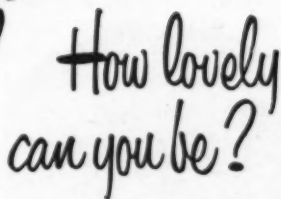 How lovely
can you be?